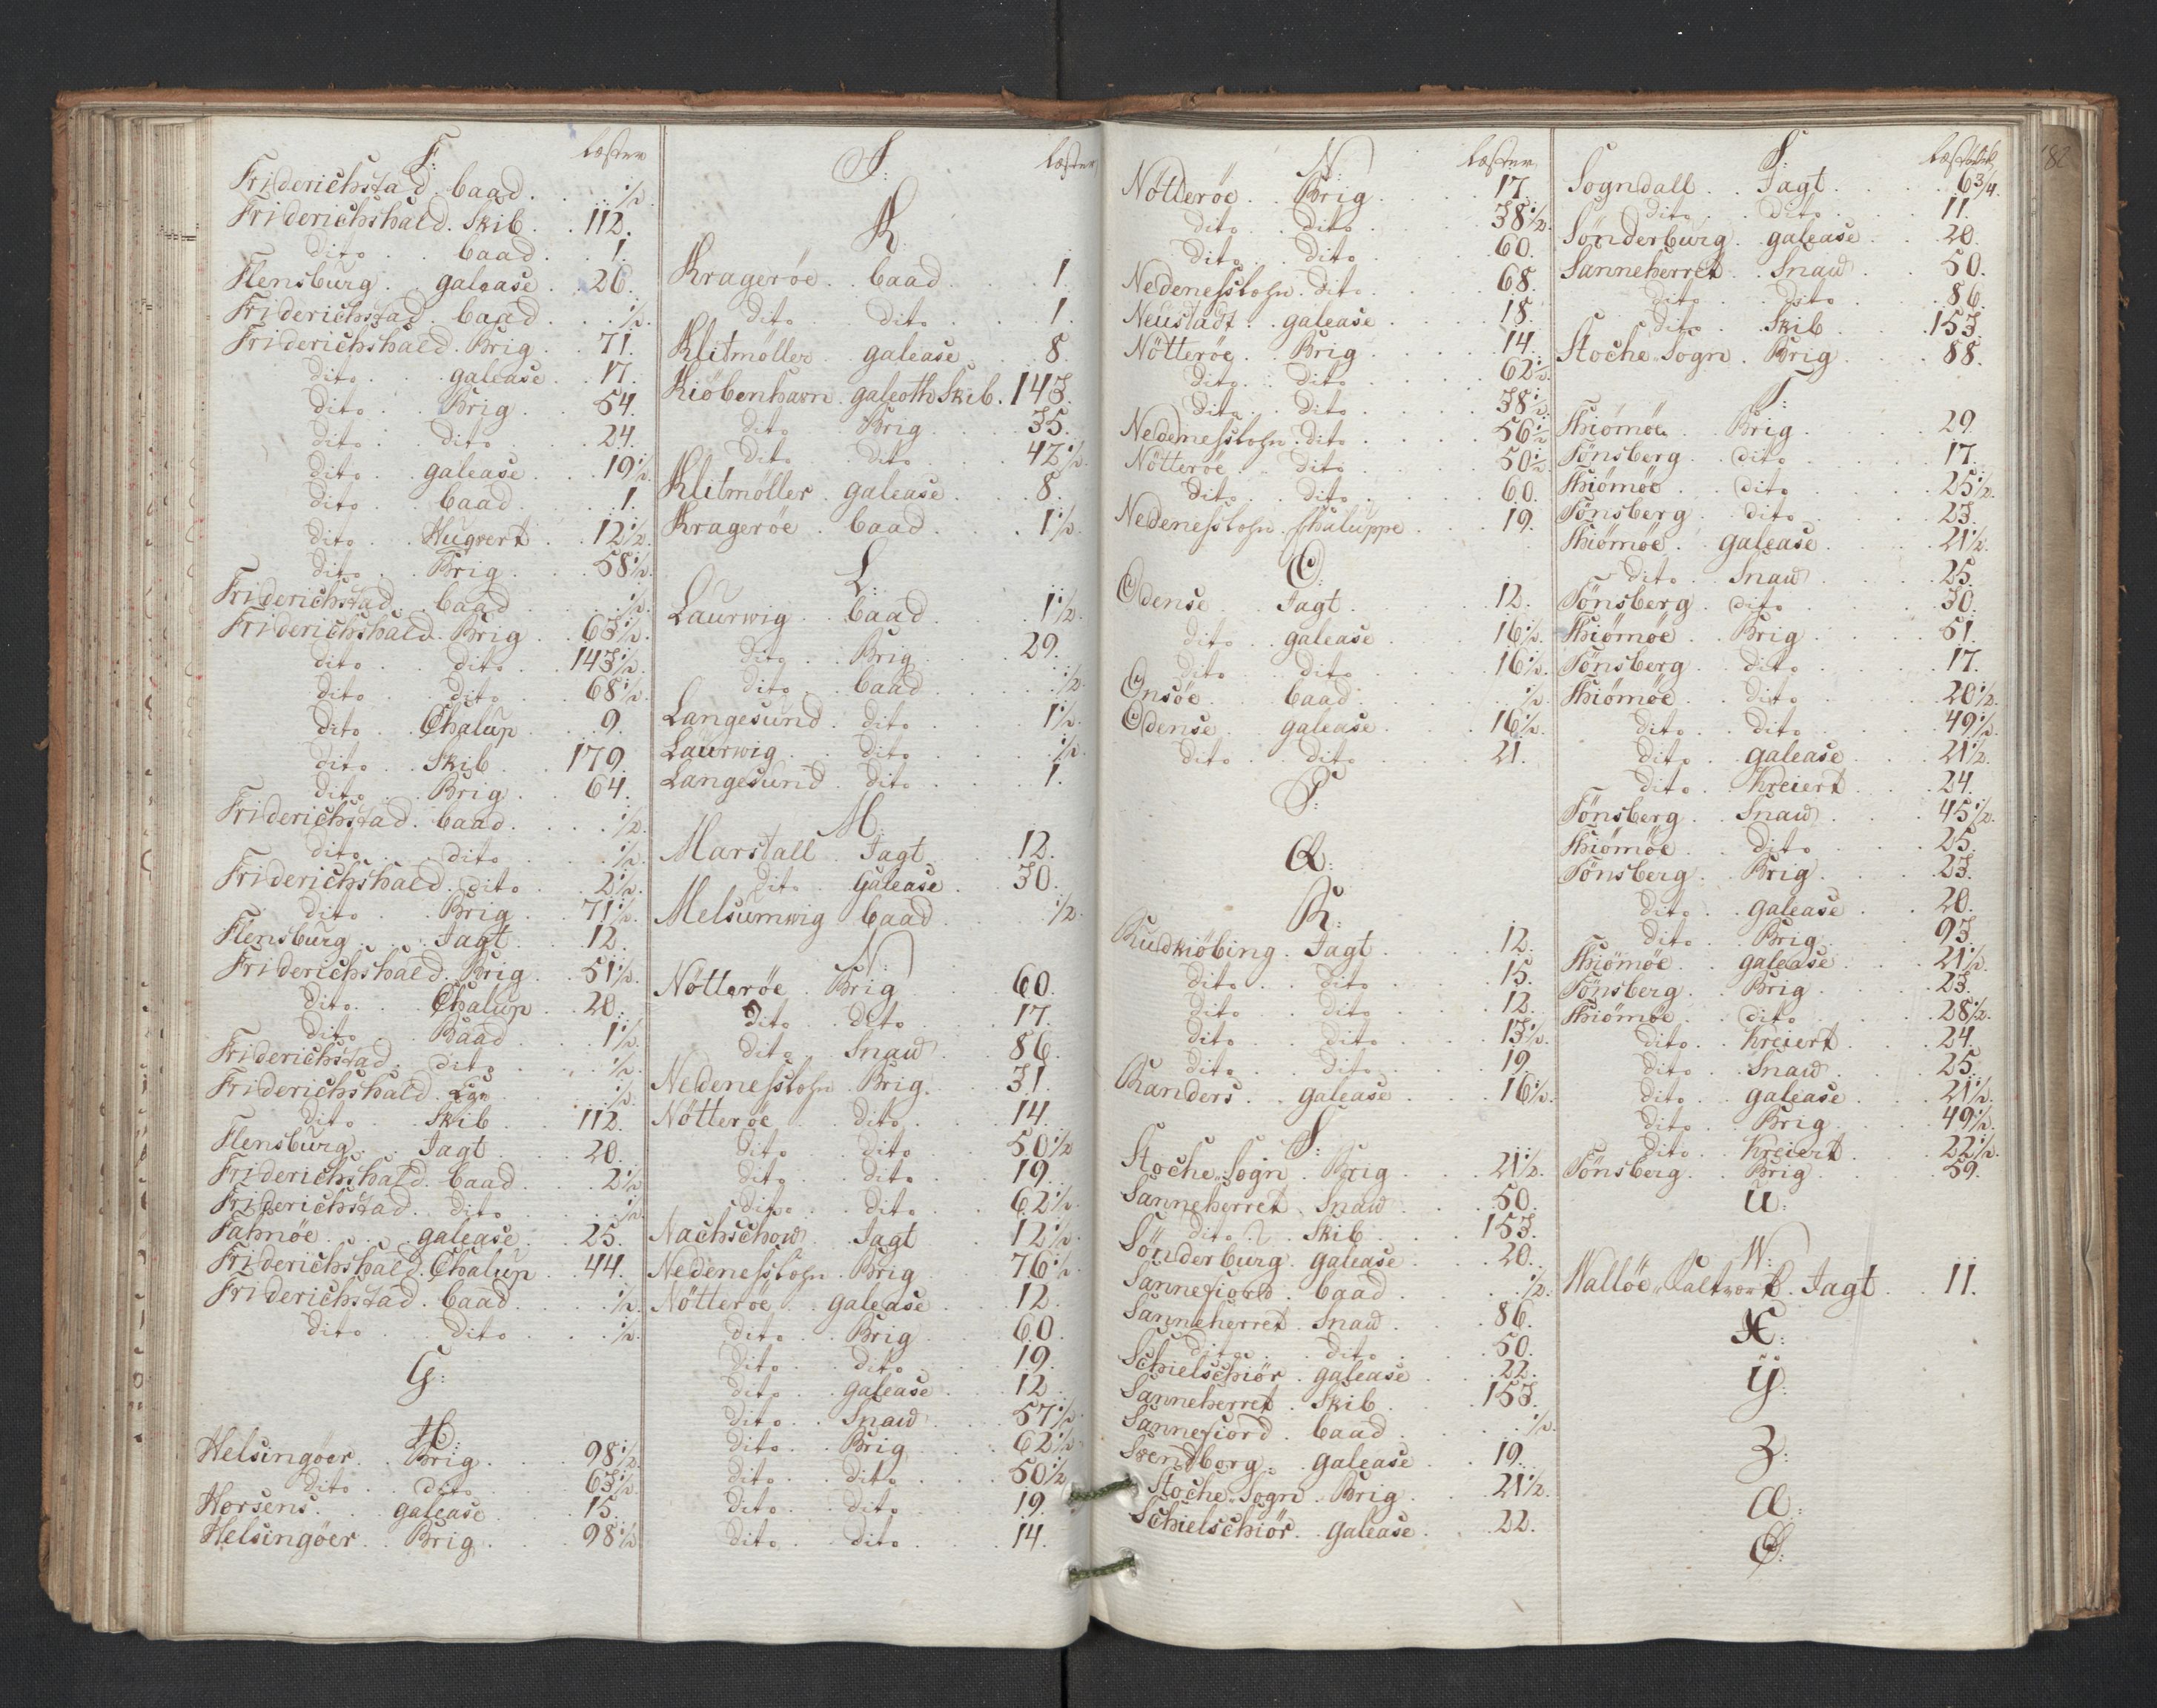 F: Læster
Friderichstad. baad. . . . ½.
Friderichshald. Skib. . 112.
dito . . baad. . 1.
Flensburg. . galease . . 26.
Friderichstad. baad. . . . ½.
Friderichshald. Brig . . 71.
dito . . galease . . 17.
dito . . Brig . . 54.
dito . . dito . . 24.
dito . . galease . . 19½
dito . . baad . . 1.
dito . . Hugvert . . 12½.
dito . . Brig . . 58½.
Friderichstad. . baad . . . ½.
Friderichshald. Brig . . 63½.
dito . . dito . . 143½.
dito . . dito . . 68½.
dito . . Chalup . . 9.
dito . . Skib . . 179.
dito . . Brig . . 64.
Friderichstad. baad. . . . ½.
dito . . dito . . ½.
Friderichshald. dito . . 2½.
dito . . Brig . . 71½.
Flensburg . . Jagt . . 12.
Friderichshald. Brig . . 51½.
dito . . Chalup . . 20.
dito . . Baad . . 1½.
Friderichstad. dito . . ½.
Friderichshald. . . ½.
dito . . Skib . . 112.
Flensburg . . Jagt . . 20.
Friderichshald. baad . . 2½
Friderichstad. dito . . ½.
Fahnøe . . galease . . 25.
Friderichshald. Chalup . . 44.
Friderichstad. baad . . ½.
dito . . dito . . ½.
G:
H:
Helsingøer . . Brig . . 98½
dito . . dito . . 63½.
Horsens . . galease . . 15.
Helsingøer . . Brig . . 98½
J: Læster
K:
Kragerøe . . baad . . 1.
dito dito . . 1.
Klitmøller . . galease . . 8.
Kiöbenhavn . galeoth Skib. 143.
dito Brig . . 35.
dito dito . . 42½.
Klitmøller . galease . . 8.
Kragerøe . baad . . 1½.
L:
Laurwig . . baad . . 1½.
dito . . Brig . . 29.
dito . . baad . . ½.
Langesund . dito . . 1½.
Laurwig . . dito . . ½.
Langesund . dito . . 1.
M:
Marstall . Jagt . . 12.
dito . Galease . . 30.
Melsumwig baad . . ½.
N:
Nötterøe . Brig . . 60.
dito . dito . . 17.
dito . Snau . . 86.
Nedenesslehn . Brig . . 31.
Nötterøe . . dito . . 14.
dito . . dito . . 50½
dito . . dito . . 19.
dito . . dito . . 62½.
Nachschow . Jagt . . 12½.
Nedenesslehn . Brig . . 76½.
Nötterøe . . galease . . 12.
dito . . Brig . . 60.
dito . . dito . . 19.
dito . . galease . . 12.
dito . . Snau . . 57½.
dito . . Brig . . 62½.
dito . . dito . . 50½.
dito . . dito . . 19.
dito . . dito . . 14.
N: Læster
Nötterøe . . Brig . . 17.
dito . . dito . . 38½.
dito . . dito . . 60.
Nedenesslehn . dito . . 68.
Neustadt . . galease . . 18.
Nötterøe . . Brig . . 14.
dito . . dito . . 62½.
dito . . dito . . 38½.
Nedenesslehn . dito . . 56½
Nötterøe . . dito . . 50½.
dito . . dito . . 60.
Nedenesslehn . Chaluppe . . 19.
O:
Odense . . Jagt . . 12.
dito . galease . . 16½.
dito . . dito . . 16½.
Onsöe . . baad . . ½
Odense . galease . . 16½.
dito . . dito . . 21.
P:
Q:
R:
Rudkiöbing . Jagt . . 12.
dito . . dito . . 15.
dito . . dito . . 12.
dito . . dito . . 13½.
dito . . dito . . 19.
Randers . . galease . . 16½.
S:
Stoche Sogn . Brig . . 21½.
Sanneherret . Snau . . 50.
dito . . Skib . . 153.
Sönderburg . galease . . 20.
Sannefiord . baad . . ½.
Sanneherret . Snau . . 86.
dito . . dito . . 50.
Schielschiör . galease . . 22.
Sanneherret . Skib . . 153.
Sannefiord . baad . . ½.
Svendborg . galease . . 19.
Stoche Sogn . Brig . . 21½.
Schielschiör . galease . . 22.
S: 182
Sogndall . . Jagt . . 6¾.
dito . . dito . . 11.
Sönderburg . galease . . 20.
Sanneherret . Snau . . 50.
dito . . dito . . 86.
dito . . Skib . . 153.
Stoche Sogn . Brig . . 88.
T:
Thiömöe . . Brig . . 29.
Tönsberg . . dito . . 17.
Thiömöe . . dito . . 25½.
Tönsberg . . dito . . 23.
Thiömöe . . galease . . 21½.
dito . . Snau . . 25.
Tönsberg . dito . . 30.
Thiömöe . . Brig . . 51.
Tönsberg . . dito . . 17.
Thiömöe . . dito . . 20½.
dito . . dito . . 49½.
dito . . galease . . 21½.
dito . . Kreiert . . 24.
Tönsberg . . Snau . . 45½.
Thiömöe . . dito . . 25.
Tönsberg . . Brig . . 23.
dito . . galease . . 20.
dito . . Brig . . 93.
Thiömöe . . galease . . 21½.
Tönsberg . . Brig . . 23.
Thiömöe . . dito . . 28½.
dito . . Kreiert . . 24.
dito . . Snau . . 25.
dito . . galease . . 21½.
dito . . Brig . . 49½.
dito . . Kreiert . . 22½.
Tönsberg . . Brig . . 59.
U:
W:
Walløe Saltverk . Jagt . . 11.
X:
Y:
Z:
Æ:
Ø: